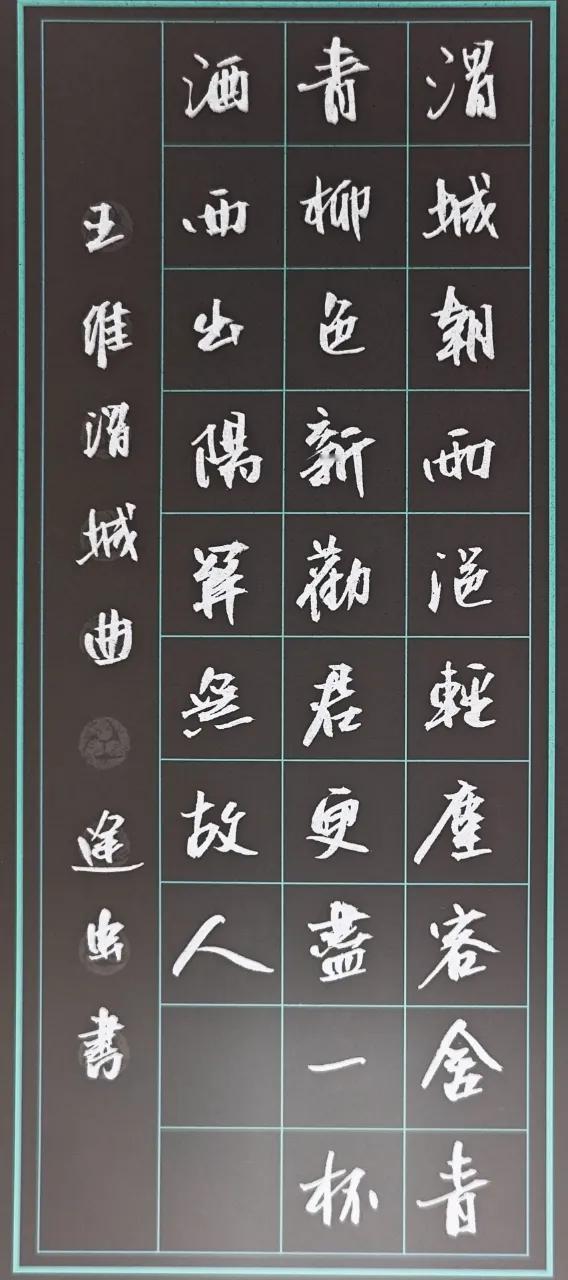 渭城朝雨浥輕塵客舍青
青柳色新勸君更盡一杯
酒西出陽關無故人
王維渭城曲 途虫書